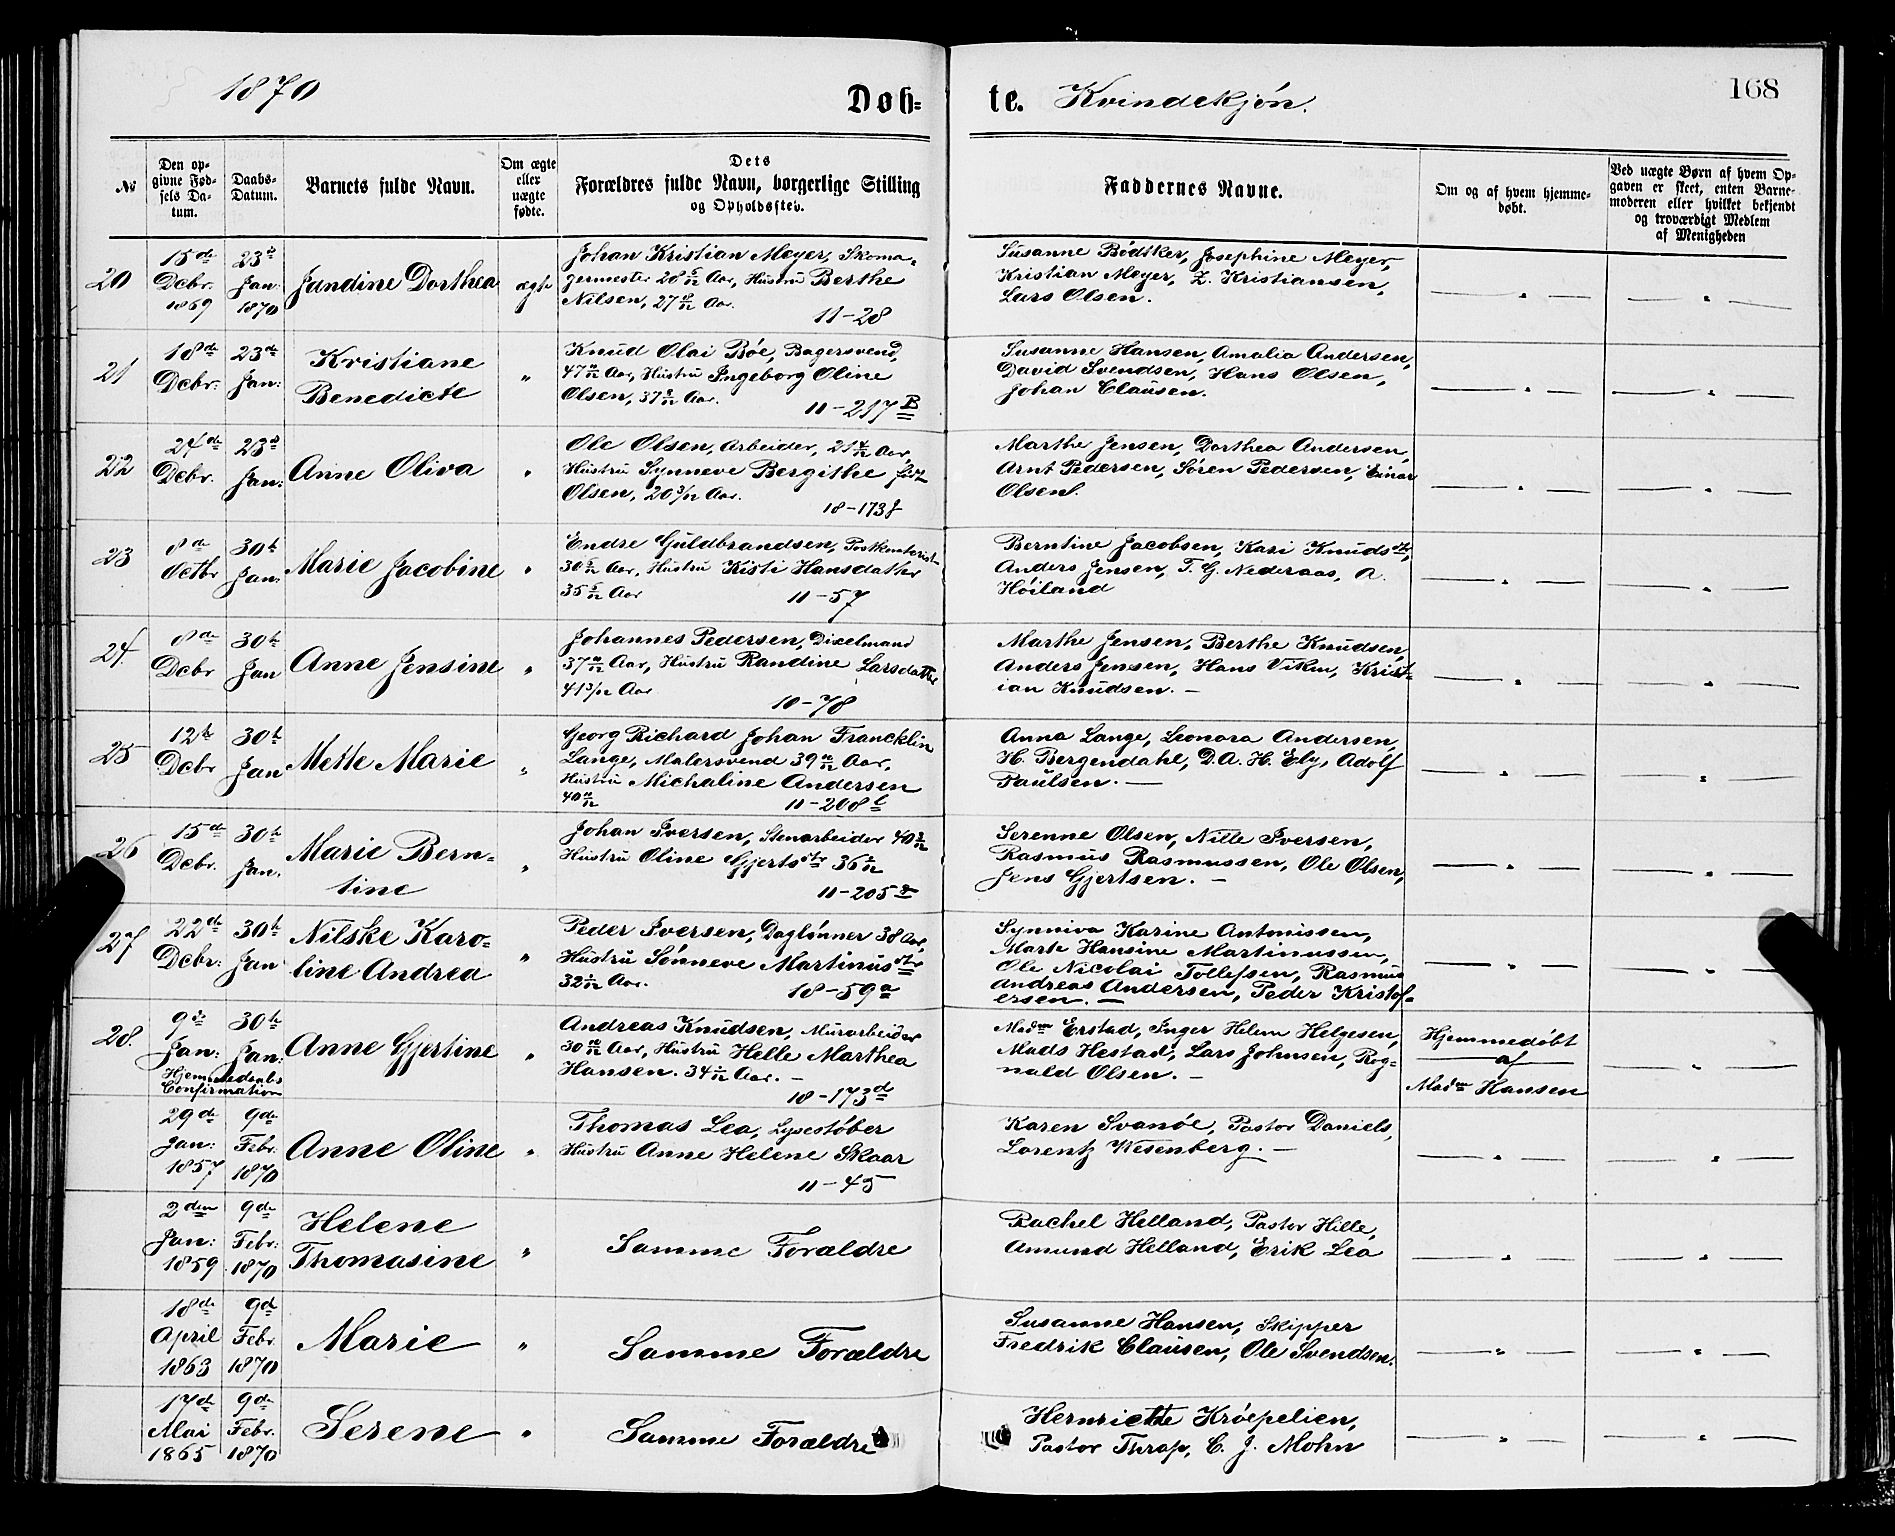 1870
Døb-
te. Kvindekjøn.
168
№
Den op-
givne Fød-
sels Da-
tum.
Daabs-
Datum.
Barnets fulde Navn.
Om ægte
eller
uægte
fødte.
Dets
Forældres fulde Navn, borgerlige Stilling
og Opholdssted.
Faddernes Navne.
Om og af hvem hjemme-
døbt.
Ved uægte Børn af hvem Op-
gaven er skeet, enten Barne-
moderen eller hvilket bekjendt
og troværdigt Medlem
af Menigheden
20
15de
Decbr.
1869
23de
Jan:
1870
Jandine Dorthea
ægte
Johan Kristian Meyer, Skoma-
germester 28 5/12 Aar, Hustru Berthe
Nilsen, 27 Aar.
11-28
Susanne Bødtker, Josephine Meyer,
Kristian Meyer, Z. Kristiansen,
Lars Olsen.
21
18de
Decbr:
23de
Jan:
Kristiane
Benedicte
"
Knud Olai Bøe, Bagersvend,
47 Aar, Hustru Ingeborg Oline
Olsen, 37 Aar.
11-217 B
Susanne Hansen, Amalia Andersen,
David Svendsen, Hans Olsen,
Johan Clausen.
22
24de
Decbr.
23de
Jan:
Anne Oliva
"
Ole Olsen, Arbeider, 21 Aar,
Hustru Synneve Bergithe født
Olsen, 20 3/12 Aar.
18-173 f
Marthe Jensen, Dorthea Andersen,
Arnt Pedersen, Søren Pedersen, Einar
Olsen.
23
8de
Octbr
30te
Jan:
Marie Jacobine
"
Endre Guldbrandsen,
30 Aar, Hustru Kisti Hansdatter
35 Aar
11-57
Berntine Jacobsen, Kari Knudsdtr,
Anders Jensen, T. G. Nederaas, A.
Høiland
24.
8de
Decbr
30te
Jan
Anne Jensine
"
Johannes Pedersen, Dixelmand
37 Aar, Hustru Randine Larsdatter
41 3/12 Aar
10-78
Marthe Jensen, Berthe Knudsen,
Anders Jensen, Hans Viken, Krist-
ian Knudsen.-
25
12te
Decbr
30te
Jan
Mette Marie
"
Georg Richard Johan Francklin
Lange, Malersvend 39 Aar,
Hustru Michaline Andersen
40
11-208 b
Anna Lange, Leonora Andersen,
H. Bergendahl, D.A. H. Ely, Adolf
Paulsen.-
26
15de
Decbr.
30te
Jan.
Marie Bern-
tine
"
Johan Iversen, Stenarbeider 40
Hustru Oline Gjertsdtr 36
11-205 a
Serenne Olsen, Nille Iversen,
Rasmus Rasmussen, Ole Olsen,
Jens Gjertsen.-
27
22de
Decbr:
30te
Jan
Nilske Karo-
line Andrea
"
Peder Iversen, Daglønner 38 Aar,
Hustru Sønneve Martinusdtr
32 Aar.
18-59 a
Synniva Karine Antonissen,
Marte Hansine Martinussen,
Ole Nicolai Tollefsen, Rasmus
Andreas Andersen, Peder Kristof-
ersen.-
28.
9de
Jan:
Hjemmedaabs
Confirmation
30te
Jan:
Anne Gjertine
"
Andreas Knudsen, Murarbeider
30 Aar, Hustru Helle Marthea
Hansen. 34 Aar.-
18-173 d
Madm Erstad, Inger Helene Helgesen,
Mads Hestad, Lars Johnsen, Reg-
nald Olsen.-
Hjemmedøbt
af
Madm Hansen
29de
Jan:
1857
9de
Febr.
1870
Anne Oline
"
Thomas Lea, Lysestøber
Hustru Anne Helene Skaar
11-45
Karen Svanøe, Pastor Daniels,
Lorentz Wesenberg.-
2den
Jan:
1859
9de
Febr:
1870
Helene
Thomasine
"
Samme Forældre
Rachel Helland, Pastor Hille,
Amund Helland, Erik Lea
18de
April
1863
9de
Febr.
1870
Marie
"
Samme Forældre
Susanne Hansen, Skipper
Fredrik Clausen, Ole Svendsen.
17de
Mai
1865
9de
Febr.
1870
Serene
"
Samme Forældre
Hernriette Krøepelien,
Pastor Thrap, C. J. Mohn